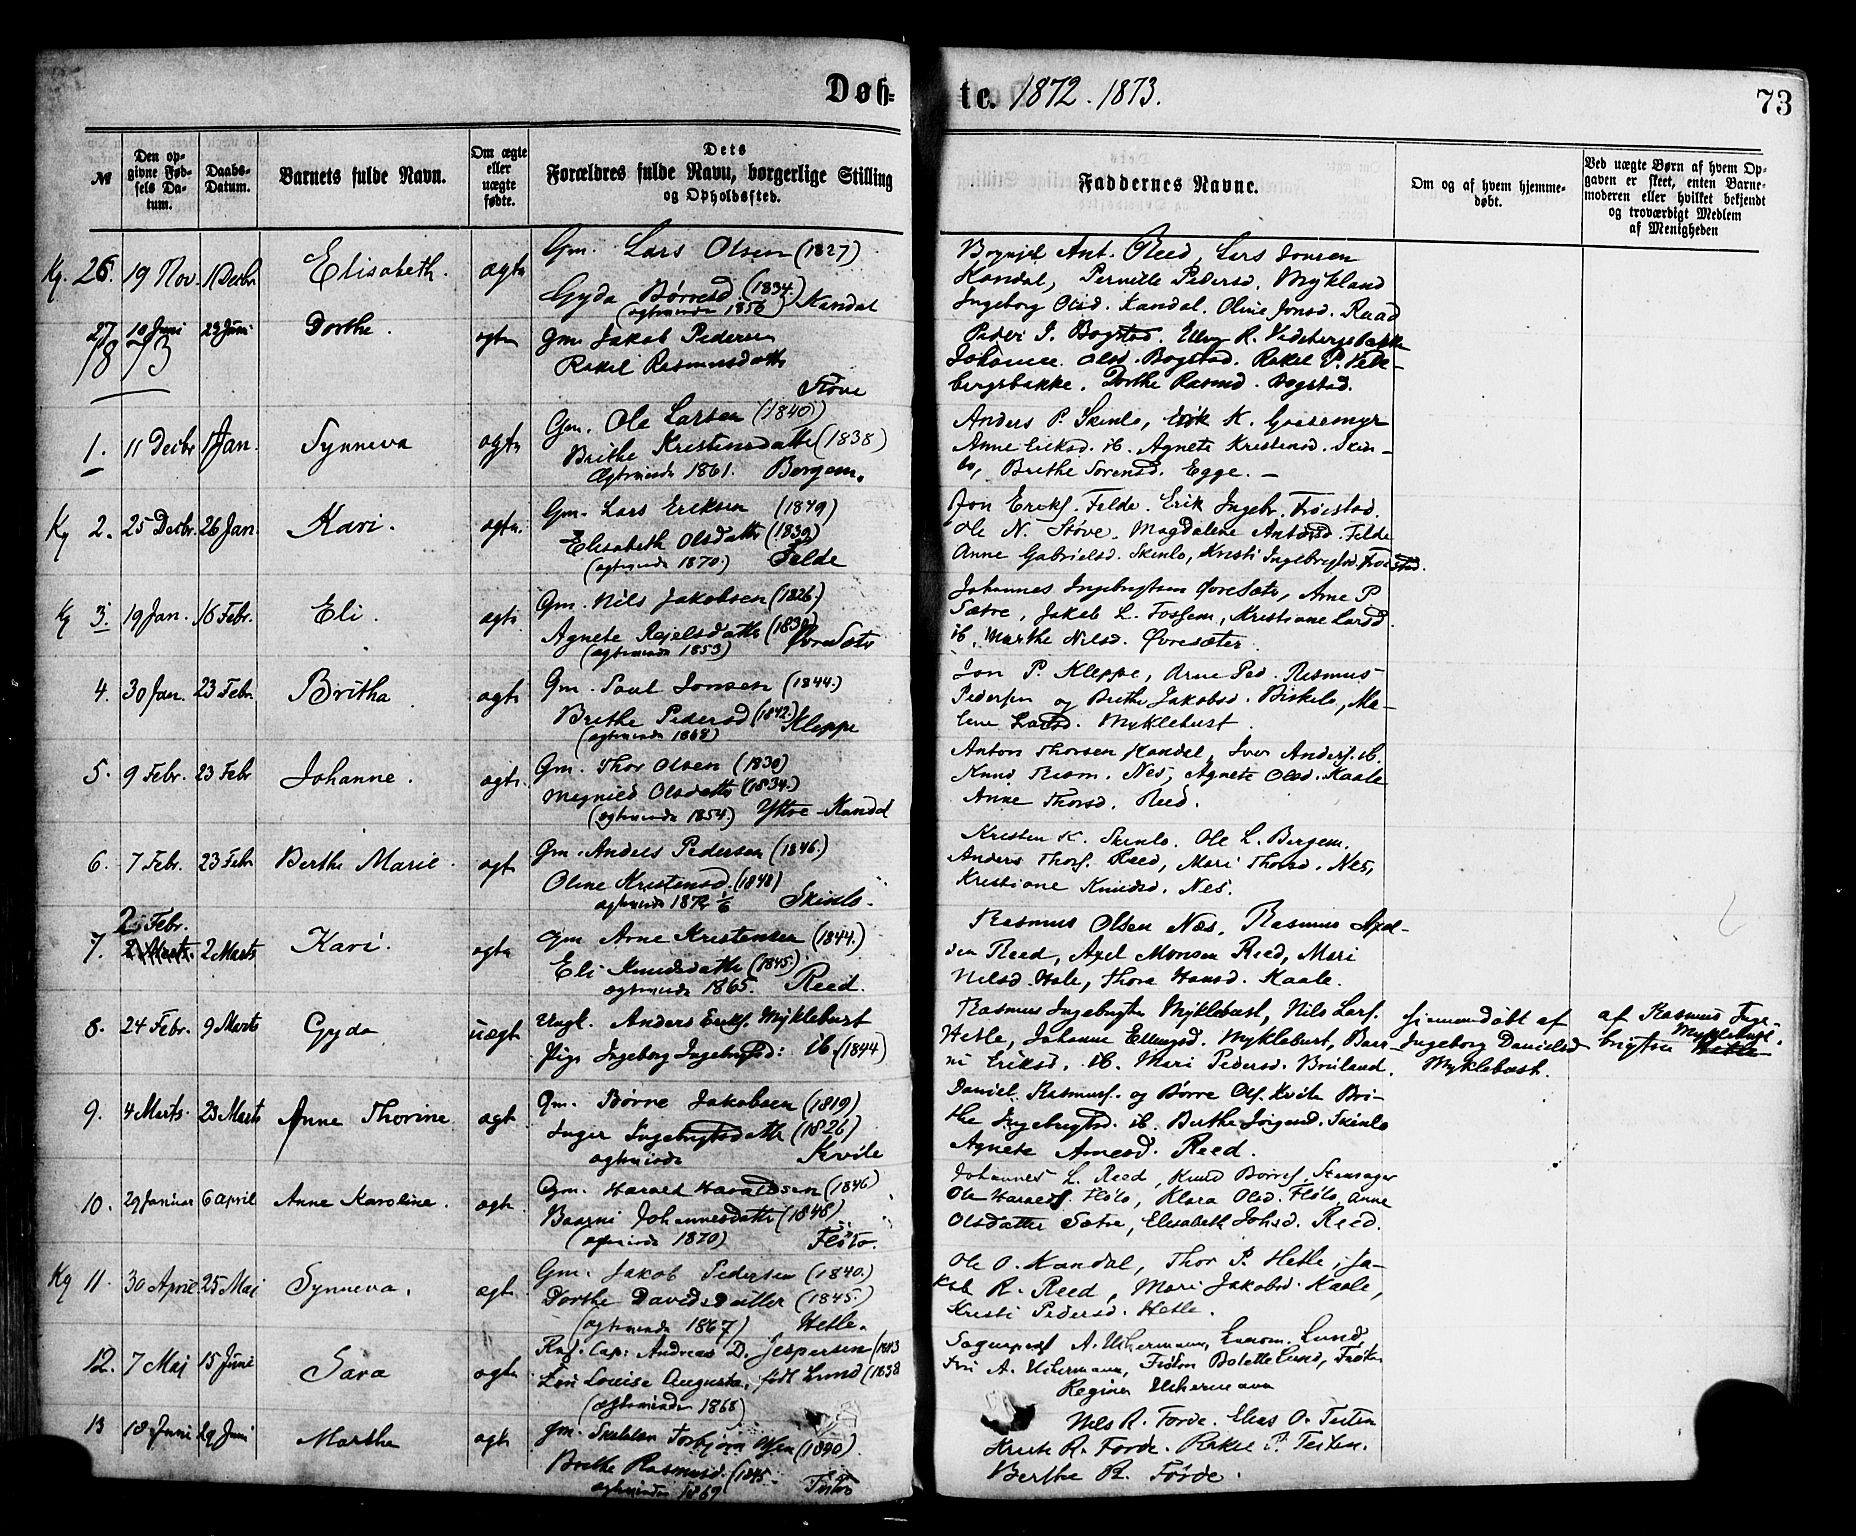 Døb-
te. 1872. 1873.
73
№
Den op-
givne Fød-
sels Da-
tum.
Daabs-
Datum.
Barnets fulde Navn.
Om ægte
eller
uægte
fødte.
Dets
Forældres fulde Navn, borgerlige Stilling
og Opholdssted.
Faddernes Navne.
Om og af hvem hjemme-
døbt.
Ved uægte Børn af hvem Op-
gaven er skeet, enten Barne-
moderen eller hvilket bekjendt
og troværdigt Medlem
af Menigheden
Kg. 26. 19 Nov. 1 Decbr Elisabeth. ægte
Gm. Lars Olsen (1827)
Gyda Børresd (1834.)
(ægteviede 1856) Kandal
Ant. Reed, Lars Jonsen
Kandal, Pernille Pedersd. Mykland
Ingeborg Olsd. Kandal. Oline Jonsd. Raad
27 10 Juni 29 Juni Dorthe. ægte
Gm. Jakob Pedersen
Rakel Rasmusdatte
Støve
Peder J. Bogstad. R.
Johanne Olsd. Bogstad. Rakel P. Vede-
bergsbakke. Dorthe Rasmd. Bogstad.
1873
1. 11 Decbr 1 Jan. Synneva ægte
Gm. Ole Larsen (1840)
Brithe Kristensdatte (1838)
Ægteviede 1861. Bergem.
Anders P. Skinlo, Erik K.
Anne Eriksd. ib. Agnete Kristensd. Skin-
lo, Brithe Sørensd. Egge. —
Kg 2. 25 Decbr. 26 Jan. Kari. ægte.
Gm. Lars Eriksen (1849)
Elisabeth Olsdatte (1839)
(ægteviede 1870.) Felde
Jon Eriks. Felde. Erik Ingebr. Frøistad.
Ole N. Støve. Magdalene Antonsd. Felde
Anne Gabrielsd. Skinlo, Kristi Ingebrigtsd. Frøistad.
Kg 3. 19 Jan. 16 Febr. Eli. ægte
Gm. Nils Jakobsen (1826.)
Agnete (1830)
(ægteviede 1853) Øvresæte
Johannes Ingebrigtsen Øvresæte, Arne P
Sætre, Jakob L. Fossem, Kristiane Larsd.
ib. Marthe Nilsd. Øvresæter.
4. 30 Jan. 23 Febr. Britha ægte
Gm. Paul Jonsen (1844.)
Brithe Pedersd (1842.) Kleppe
(ægteviede 1868)
Jon P. Kleppe, Arne Ped. Rasmus
Pedersen og Brithe Jakobsd. Birkelo, Ma-
lene Larsd. Myklebust.
5. 9 Febr. 23 Febr Johanne. ægte.
Gm. Thor Olsen (1830)
Magnild Olsdatte (1834.)
(ægteviede 1854.) Ytre Kandal
Anton Thorsen Kandal, Iver Anders. ib.
Knud Rasm. Nes, Agnete Olsd. Kaale
Anne Thorsd. Reed.
6. 7 Febr. 23 Febr Berthe Marie. ægte
Gm. Anders Pedersen (1846.)
Oline Kristensd. (1848)
ægteviede 1872 1/6 Skinlo.
Kristen K. Skinlo. Ole L. Bergem.
Anders Thors. Reed, Mari Thorsd. Nes,
Kristiane Knudsd. Nes.
7. 2 Febr.
2 Marts. 2 Marts Kari. ægte
Gm Arne Kristensen (1844.)
Eli Knudsdatte (1845.)
ægteviede 1865. Reed.
Rasmus Olsen Næs. Rasmus Axel-
sen Reed, Axel Monsen Reed, Mari
Nilsd. Hole, Thora Hansd. Kaale.
8. 24 Febr. 9 Marts Gyda uægte
Ungk. Anders Eriks. Myklebust
Pige Ingeborg Ingebrigtsd: ib. (1844)
Rasmus Ingebrigtsen Myklebust, Nils Lars.
Hetle, Johanne Ellingsd. Myklebust, Baar-
ni Eriksd. ib. Mari Pedersd. Bruland.
hjemmedøbt af
Ingeborg Danielsd
Myklebust.
af Rasmus Inge-
brigtsen Hetle Myklebust.
9. 4 Marts. 23 Marts Anne Thorine ægte
Gm. Børre Jakobsen (1819)
Inger Ingebrigtsdatte (1826)
ægteviede Kvile
Daniel Rasmus. og Børre Ols. Kvile Bri-
the Ingebrigtsd. ib. Berthe Jørgensd. Skinlo
Agnete Arnesd. Reed.
10. 29 Januar 6 April Anne Karoline. ægte
Gm. Harald Haraldsen (1846)
Baarni Johannesdatte (1848)
(ægteviede 1870) Fløto.
Johannes L. Reed, Knud Børres. Stensager
Ole Haralds. Fløto, Klara Olsd. Fløto, Anne
Olsdatter Sætre, Elisabeth Johsd. Reed.
Kg 11. 30 April 25 Mai Synneva. ægte
Gm. Jakob Pedersen (1840.)
Dorthe Davidsdatter (1845.)
(ægteviede 1867) Hetle.
Ole O. Kandal, Thor P. Hetle, Ja-
kob R. Reed, Mari Jakobsd. Kaale,
Kristi Pedersd. Hetle.
12. 7 Mai 15 Juni Sara ægte
Cap: Andreas D. Jespersen
Louise Augusta, født Lund (1838
(ægteviede 1868)
A. Uchermann, Lund,
Fru A. Uchermann, Frøken Bolette Lund, Frøken
Regine Uchermann
13 18 Juni 29 Juni Marthe ægte
Gm. Torbjørn (1840)
Brithe Rasmusd. (1845
ægteviede 1869
Nils R. Førde. Elias O. Teiten
R. Førde. Rakel P. Teiten.
Berthe R. Førde.